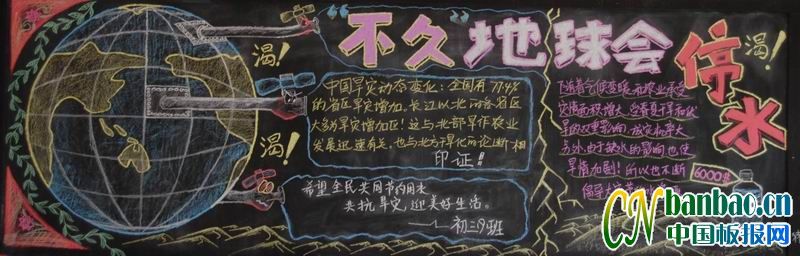 "不久"地球会停水
渴!
渴!
渴!
中国旱灾动态变化:全国有77.4%
的省区旱灾增加,长江以北的各省区
大多为旱灾增加区!这与北部旱作农业
发展迅速有关,也与北方干旱化的论断相
印证!!
希望全民共同节约用水
共抗旱灾,迎美好生活。
——初三9班
渴!
气候变暖和农业承受
灾情面积增大
的双重影响,成灾机率大
另外,由于缺水的影响也使
旱情加剧!所以也不断
6000年
CNbanbao.cn
中国板报网